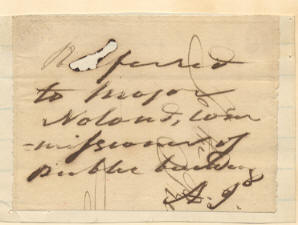 Referred
to Major
Noland, Com
-missioner of
Public buildings
A. J.